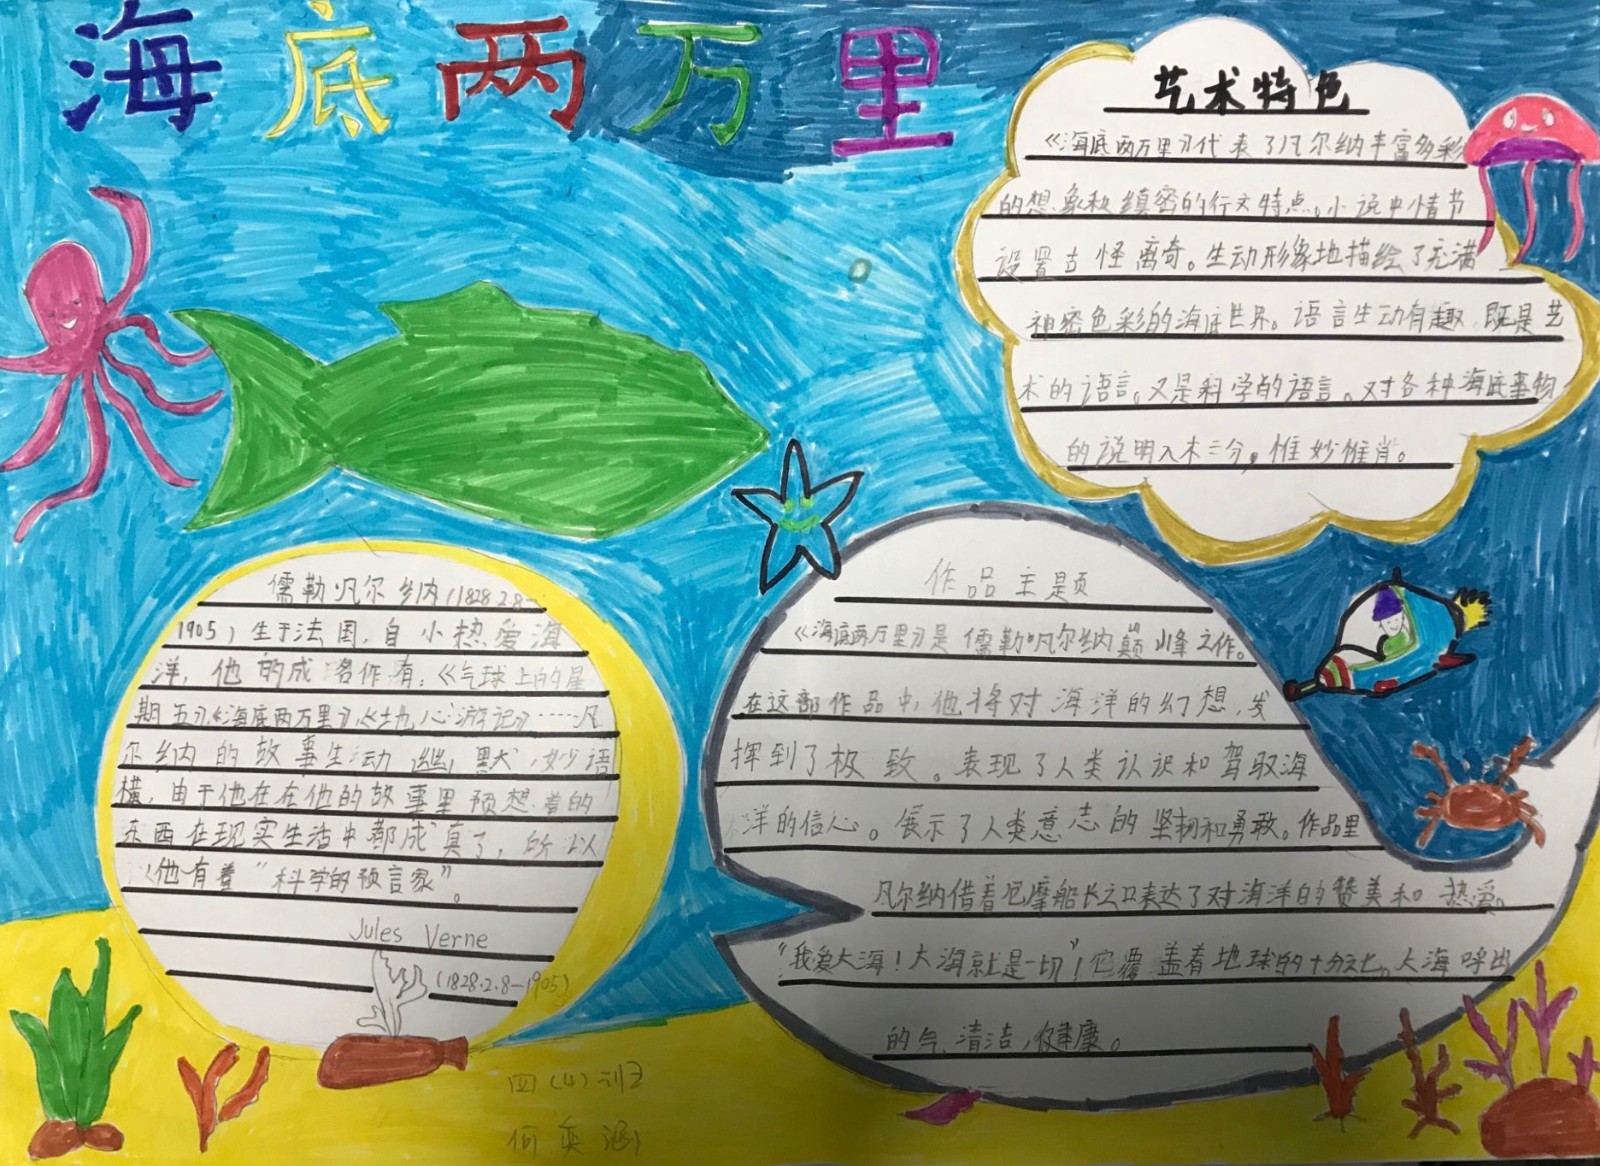 海底两万里
艺术特色
《海底两万里》代表了凡尔纳丰富多彩
的想象和缜密的行文特点。小说中情节
设置古怪离奇。生动形象地描绘了充满
神密色彩的海底世界。语言生动有趣,既是艺
术的语言。又是科学的语言。对各种海底事物
的说明入木三分,惟妙惟肖。
儒勒·凡尔纳(1828.2.8-
1905)生于法国,自小热爱海
洋,他的成名作有:《气球上的星
期五》《海底两万里》《地心游记》……凡
尔纳的故事生动幽默,妙语
横,由于他在在他的故事里预想着的
东西在现实生活中都成真了,所以
他有着“科学的预言家”。
Jules Verne
(1828.2.8-1905)
作品主题
《海底两万里》是儒勒·凡尔纳巅峰之作。
在这部作品中,他将对海洋的幻想,发
挥到了极致。表现了人类认识和驾驭海
洋的信心。展示了人类意志的坚韧和勇敢。作品里
凡尔纳借着尼摩船长之口表达了对海洋的赞美和热爱。
“我爱大海!大海就是一切”!它覆盖着地球的十分之七,大海呼出
的气,清洁,健康。
四(4)班
何奕涵